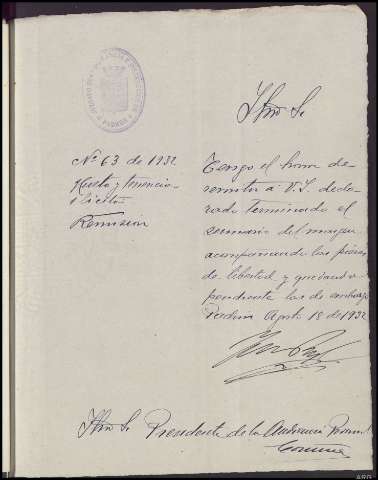 Iltmo Sr.
Nº 63 de 1932
Hurto y tenencia
ilícita
Remisión
Tengo el honor de
remitir a V.I. decla
rado terminado el
sumario del margen
acompañando las piezas
de libertad y quedando
pendiente las de embargo
Padrón Agosto 18 de 1932
Iltmo Sr. Presidente de la Audiencia Provincial
Coruña
ARG